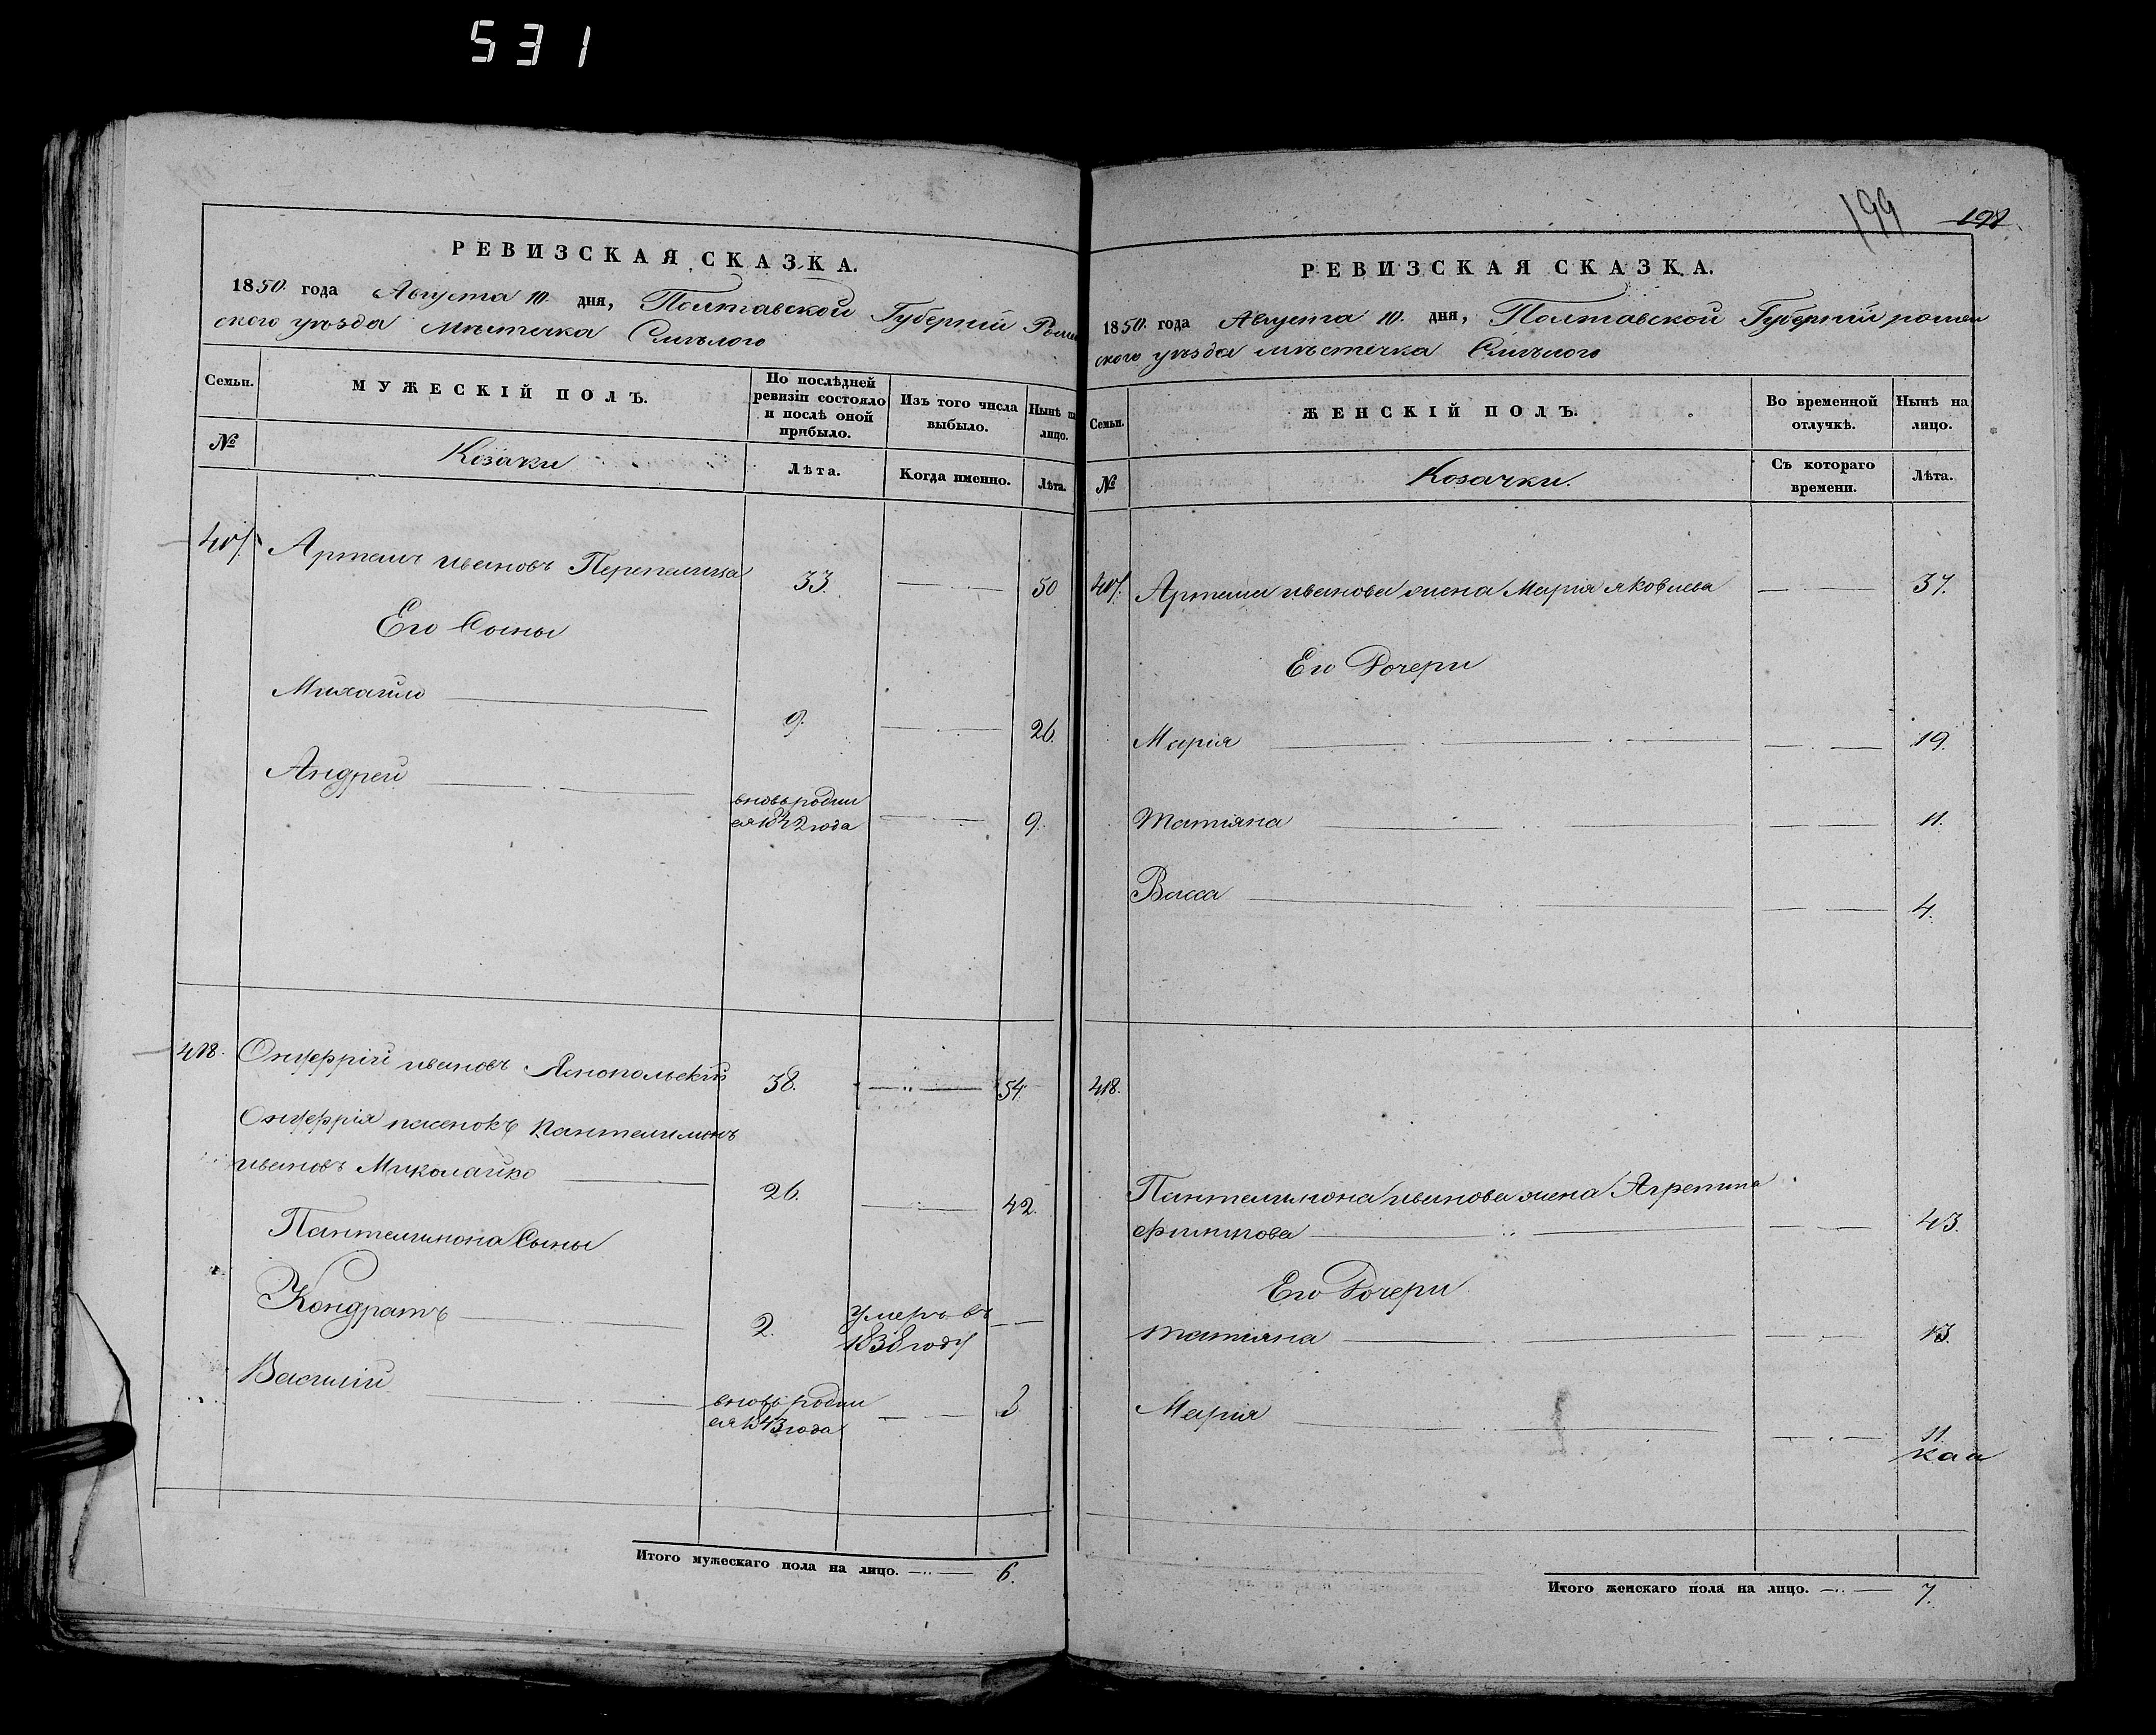 531
РЕВИЗСКАЯ СКАЗКА.
1850. года Августа 10. дня, Полтавской Губерніи Ромен
ского уѣзда мѣстечка Смѣлого
Семьи.
МУЖЕСКІЙ ПОЛЪ.
По послѣдней ревизіи состояло и послѣ оной прибыло.
Изъ того числа выбыло.
Нынѣ на лицо.
№
Козаки
Лѣта.
Когда именно.
Лѣта.
Артемъ Ивановъ Перепелица 33. 50
Его Сыны
Михайло 9. 26.
Андрей вновь родил
ся 1842 года 9.
418. Онуфрій Ивановъ Яснопольскій 38. 54.
Онуфрія пасенокъ Пантелимонъ
Ивановъ Миколайко 26. 42.
Пантелимона Сыны
Кондратъ 2. Умеръ въ
1838 году
Василій вновь родил
ся 1843 года
Итого мужескаго пола на лицо. 6.
199 198
РЕВИЗСКАЯ СКАЗКА.
1850. года Августа 10. дня, Полтавской Губерніи ромен
ского уѣзда мѣстечка Смѣлого
Семьи.
ЖЕНСКІЙ ПОЛЪ.
Во временной отлучкѣ.
Нынѣ на лицо.
№
Козачки.
Съ котораго времени.
Лѣта.
Артема Иванова жена Марія яковлева 37.
Его Дочери
Марія 19.
Татіяна 11.
Васса 4.
418.
Пантелимона Иванова жена Агрепина
43.
Его Дочери
Татіяна 13.
Марія 11.
Итого женскаго пола на лицо. 7.